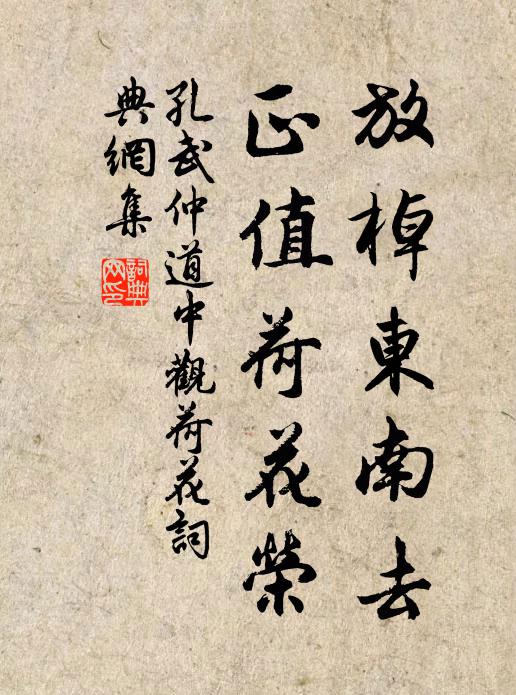 放棹東南去
正值荷花榮
孔武仲道中觀荷花詞
典網集
詞典网印